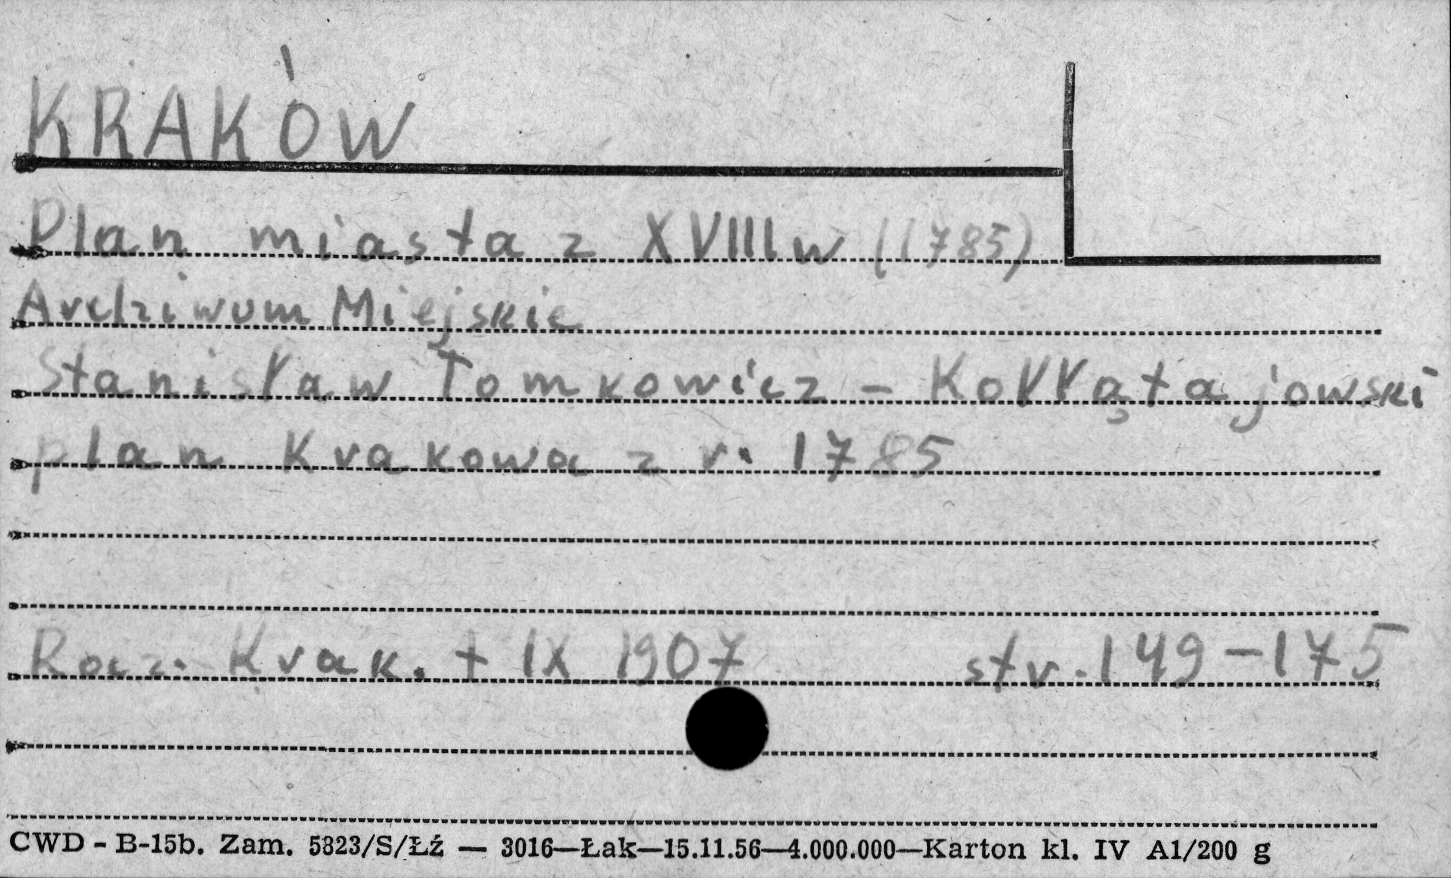 KRAKÓW
Plan miasta z XVIII w (1785)
Archiwum Miejskie
Stanisław Tomkowicz - Kołłątajowski
plan Krakowa z r. 1785
Rocz. Krak. t IX 1907 str. 149-175
CWD - B-15b. Zam. 5823/S/Łź — 3016—Łak—15.11.56—4.000.000—Karton kl. IV A1/200 g